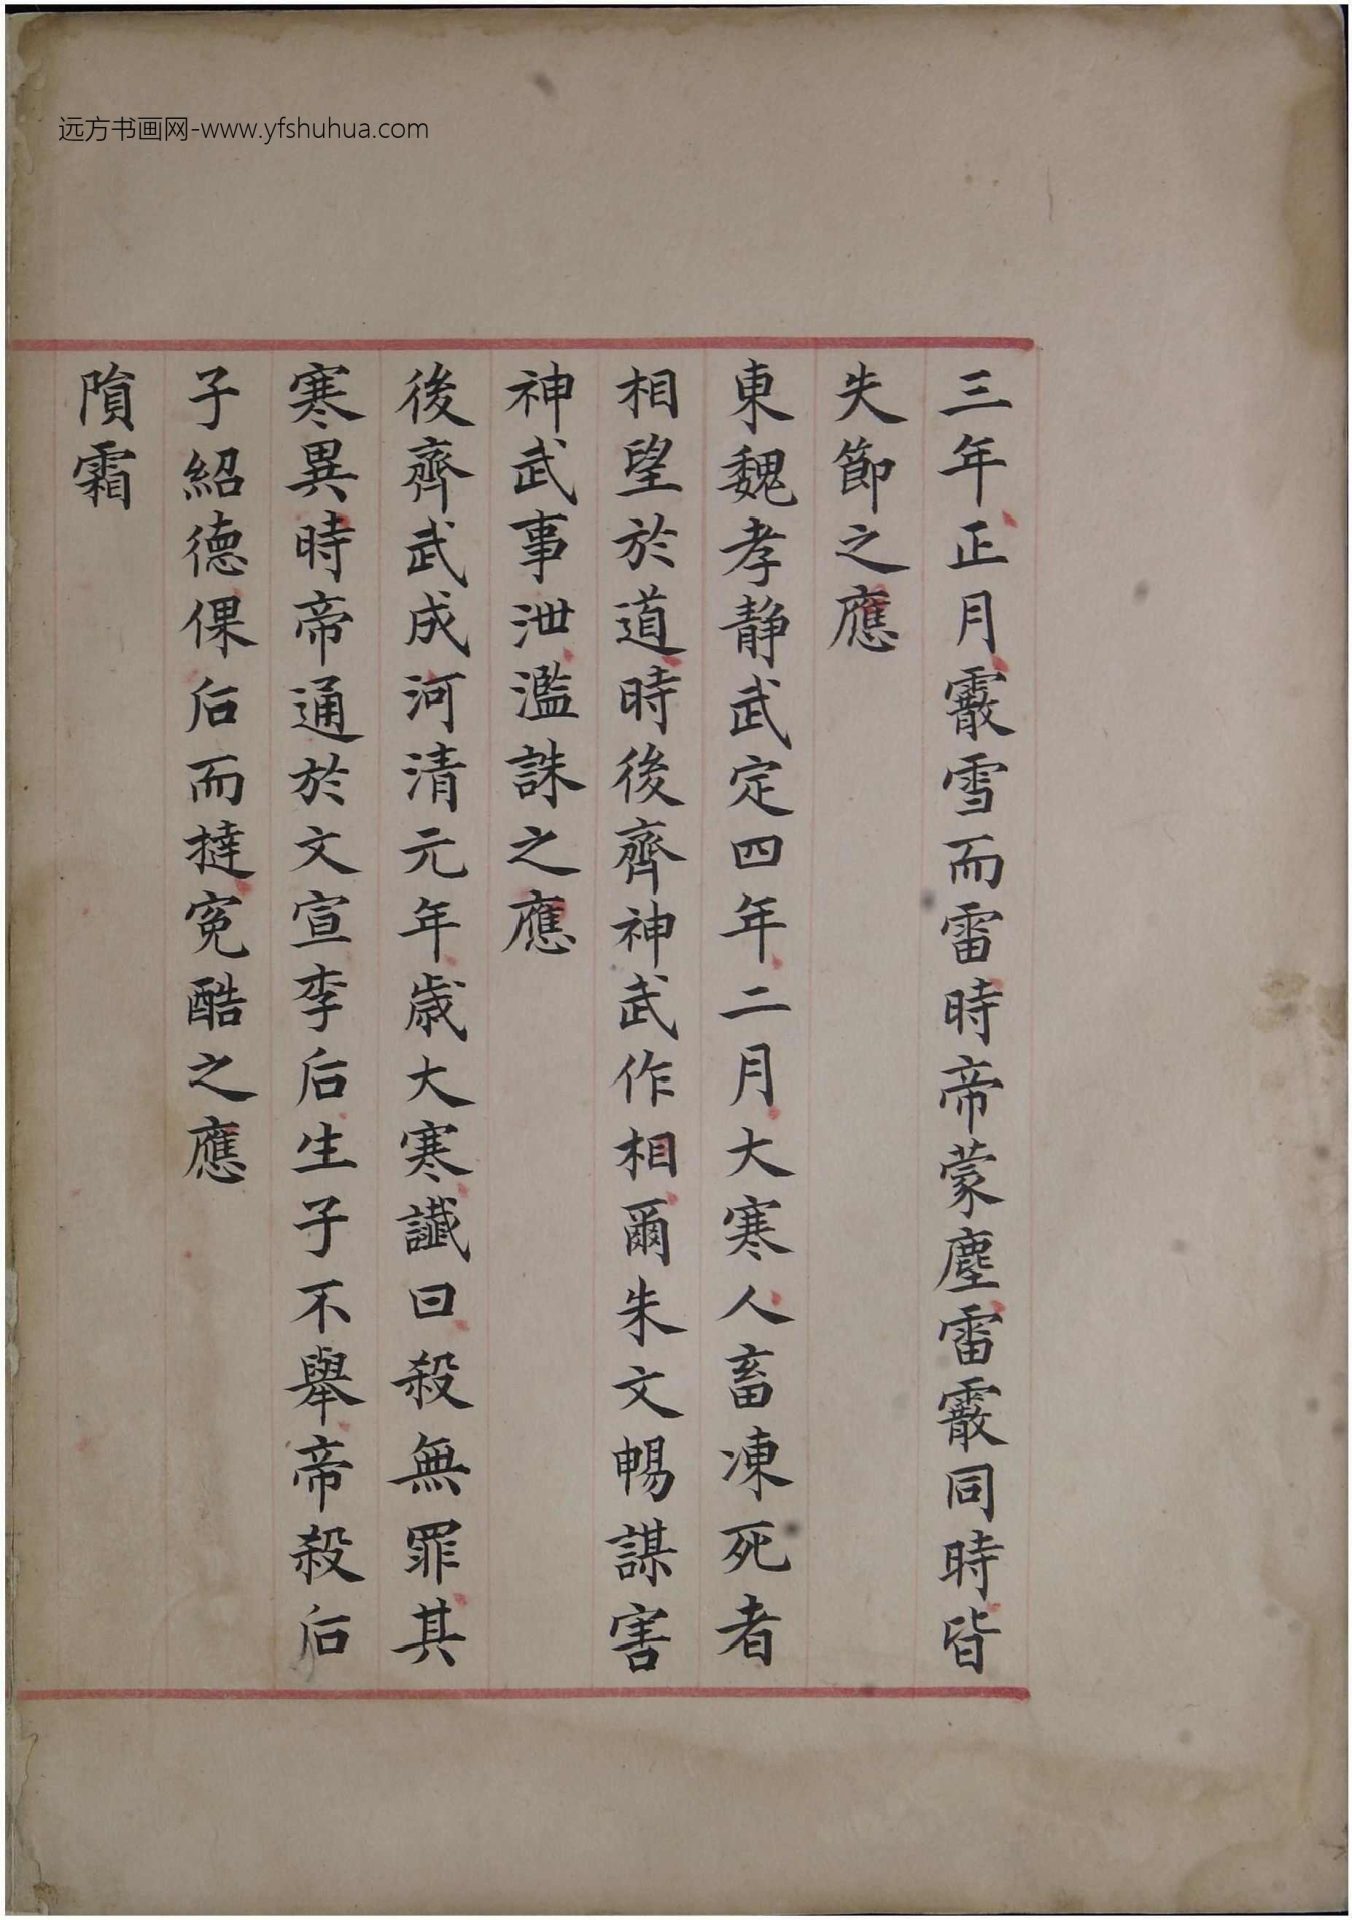 远方书画网-www.yfshuhua.com
三年正月霰雪而雷時帝蒙塵雷霰同時皆
失節之應
東魏孝静武定四年二月大寒人畜凍死者
相望於道時後齊神武作相爾朱文暢謀害
神武事泄濫誅之應
後齊武成河清元年歲大寒讖曰殺無罪其
寒異時帝通於文宣李后生子不舉帝殺后
子紹德倮后而撻寃酷之應
隕霜